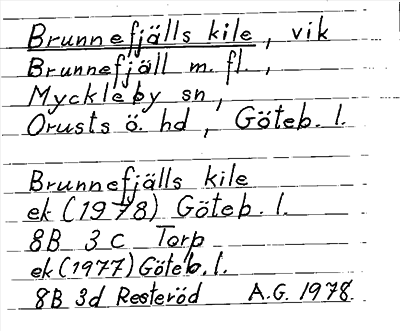 Brunnefjälls kile, vik
Brunnefjäll m. fl.,
Myckleby sn,
Orusts ö. hd, Göteb. l.
Brunnefjälls kile
ek (1978) Göteb. l.
8B 3c Torp
ek (1977) Göteb. l.
8B 3d Resteröd A.G. 1978.